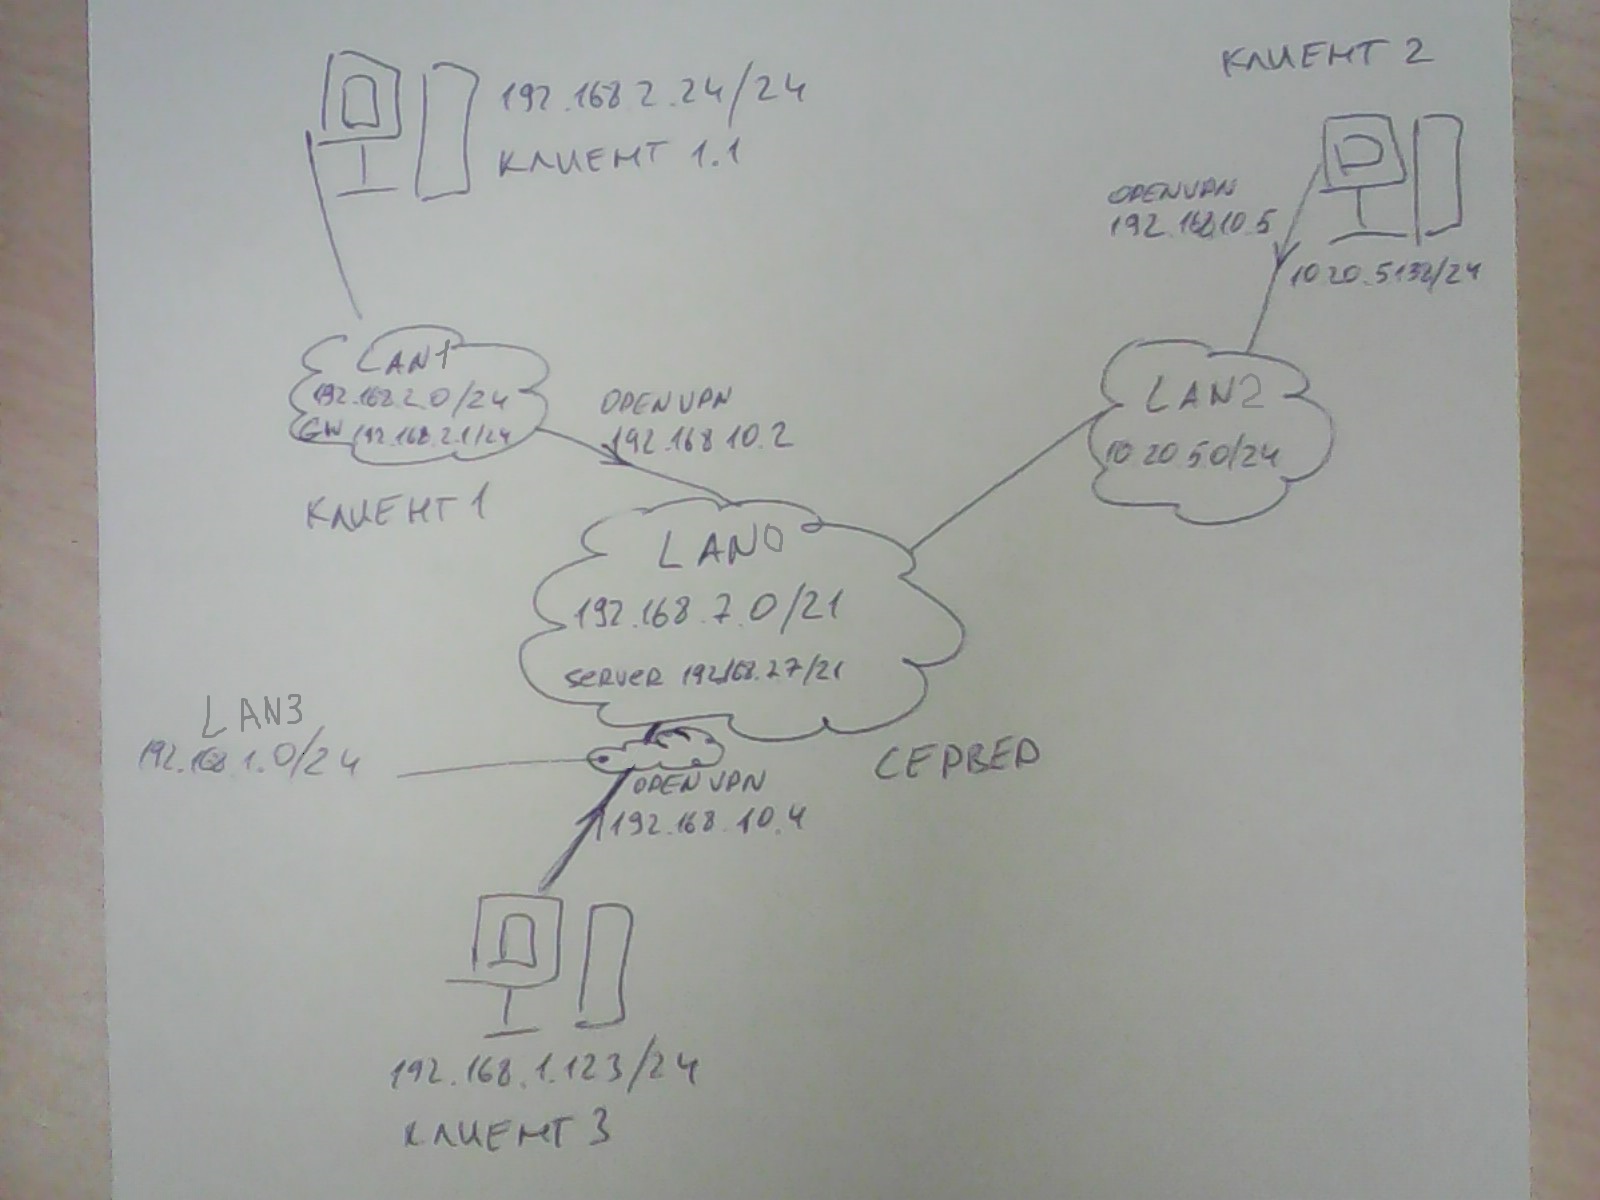 КЛИЕНТ 2
192.168 2.24/24
КЛИЕНТ 1.1
OPENVPN
192.168.10.5
10 20.5132/24
LAN1
192.168.2.0/24
GW 192.168.2.1/24
OPENVPN
192.168 10.2
КЛИЕНТ 1
LAN2
10 20 50/24
LAN0
192.168.7.0/21
SERVER 192.168.27/21
СЕРВЕР
LAN3
192.168 1.0/24
OPENVPN
192.168.10.4
192.168.1.123/24
КЛИЕНТ 3